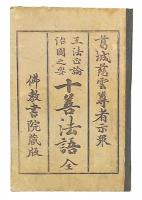 葛城慈雲尊者示衆
王法正論
治国之要
十善法語 全
佛教書院藏版